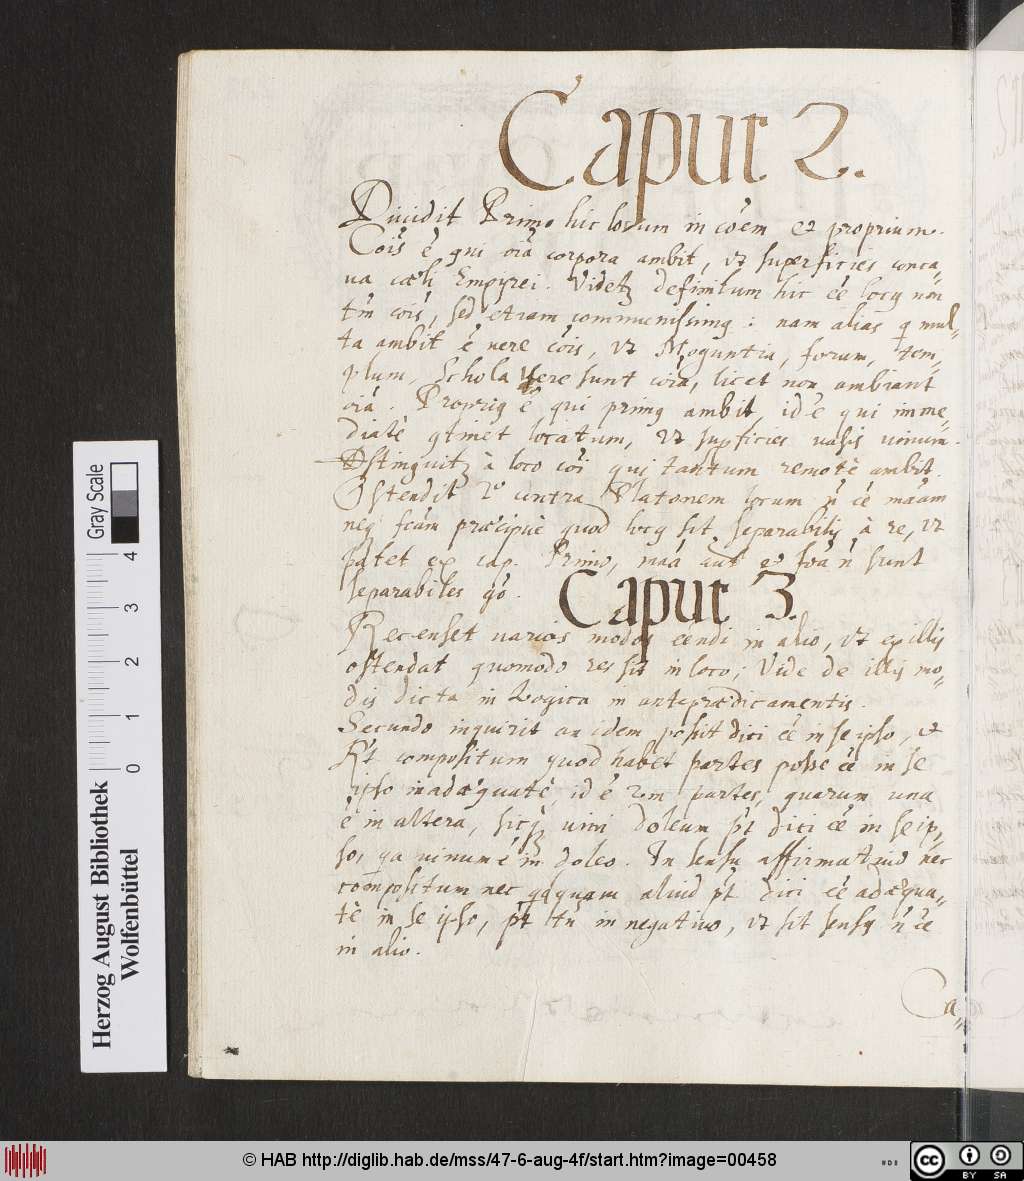 Caput 2.
Diuidit Primo hic locum in cōem et proprium.
Cōis ē qui oīa corpora ambit, vt superficies conca„
ua cæli Empyrei. Videtꝫ definitum hic eē locꝰ non
tm̄ cōis, sed etiam communissimꝰ: nam alias q mul„
ta ambit ē uere cōis, vt Moguntia, forum, tem„
plum, Schola vere sunt cōia, licet non ambiant
oīa. Propriꝰ ē qui primꝰ ambit, id ē qui imme„
diatè ꝯtinet locatum, vt supficies uasis uinum.
Dstinguitꝫ à loco cōi qui tantum remotè ambit.
Ostendit 2º contra Platonem locum n̄ eē māam
neqꝫ fōam præcipuè quod locꝰ sit separabilis à re, vt
patet ex cap. Primo, māa aut et fōa n̄ sunt
separabiles gō.
Caput 3.
Recenset varios modos eendi in alio, vt ex illis
ostendat quomodo res sit in loco; Vide de illis mo„
dis dicta in Logica in antepræditcamentis.
Secundo inquirit an idem possit dici eē in se ipso, et
Rt compositum quod habet partes posse eē in se
ipso inadæquatè, id ē rōm partes, quarum una
ē in altera, sicqꝫ vini doleum pt dici eē in se ip„
so, qa uinum ē in doleo. In sensu affirmatiuo nec
compositum nec qdquam aliud pt dici eē adæqua„
tè in se ipso, pt tn̄ in negatiuo, vt sit sensꝰ n̄ eē
in alio.
Ca„
Gray Scale
0 1 2 3 4
Herzog August Bibliothek
Wolfenbüttel
© HAB http://diglib.hab.de/mss/47-6-aug-4f/start.htm?image=00458
cc BY SA